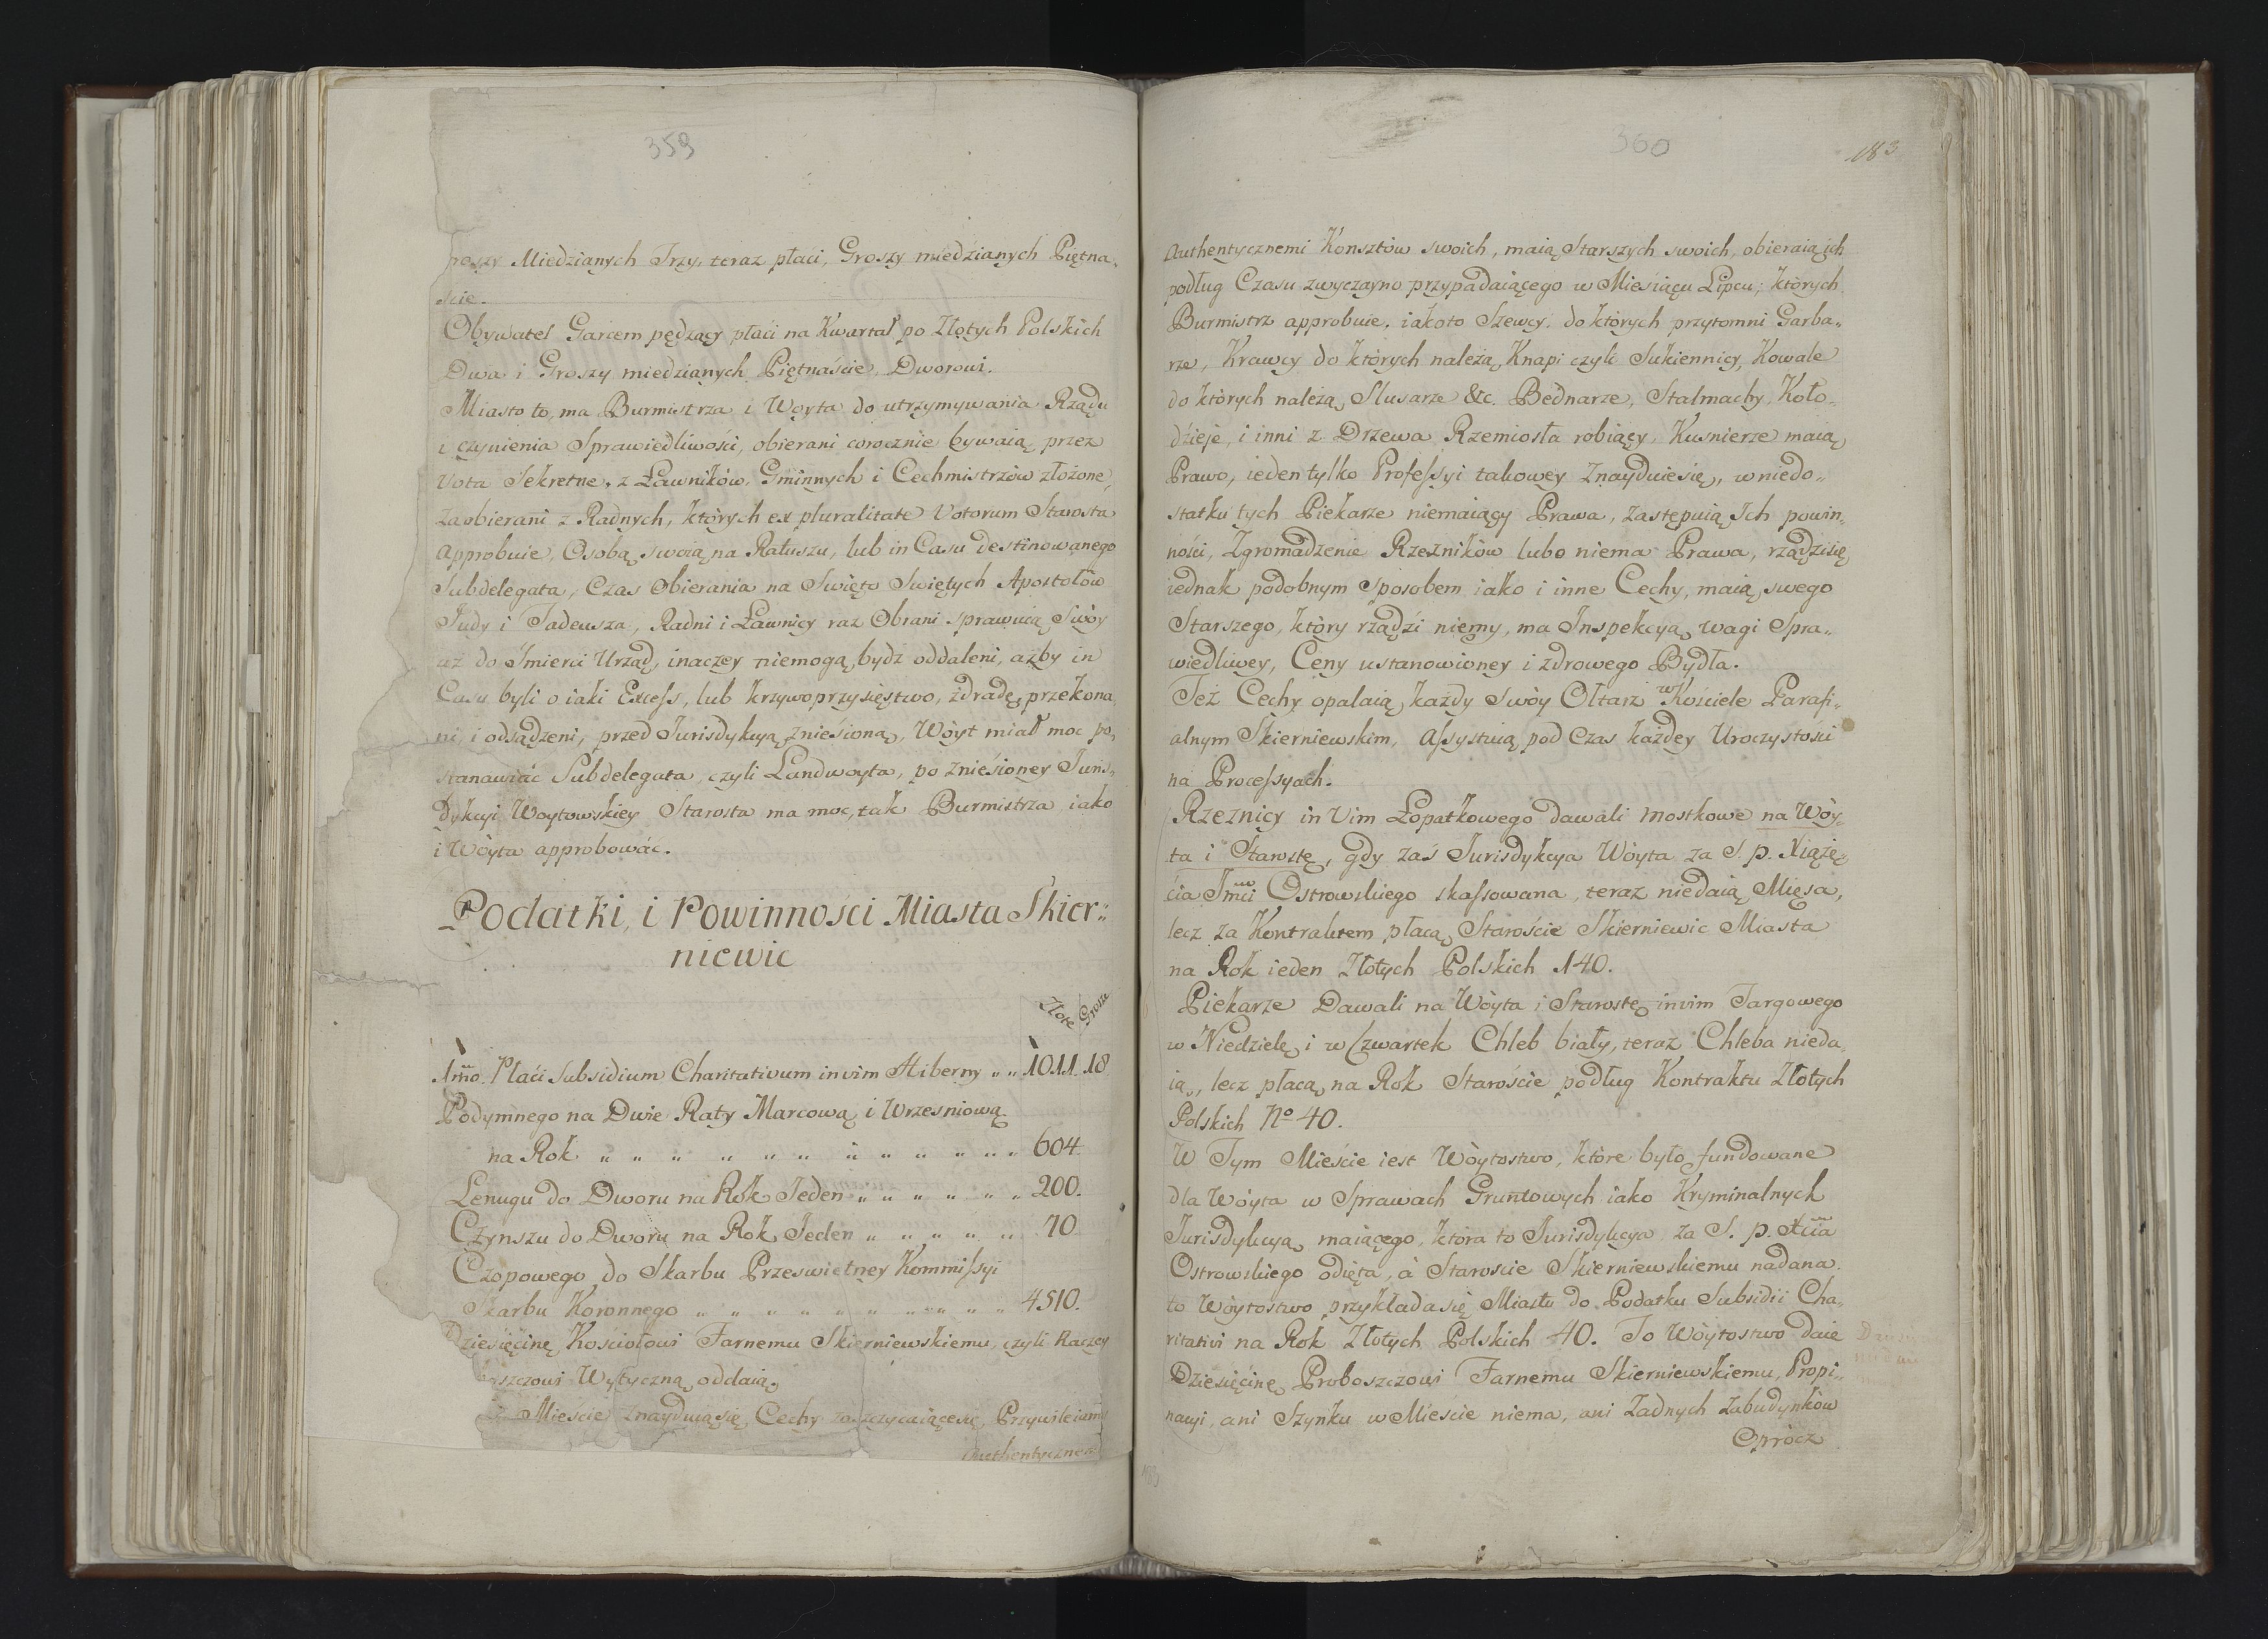 359
Miedzianych Trzy, teraz płaci, Groszy miedzianych Piętna„
ście.
Obywatel Garcem pędzący płaci na Kwartał po Złotych Polskich
Dwa i Groszy miedzianych Piętnaście, Dworowi.
Miasto to, ma Burmistrza i Woyta do utrzymywania Rządu
i czynienia Sprawiedliwości, obierani corocznie bywaią przez
Vota Sekretne, z Ławników, Gminnych i Cechmistrzów złożone,
zaobierani z Radnych, których ex pluralitate Votorum Starosta
approbuie, Osobą swoią na Ratuszu, lub in Casu destinowanego
Subdelegata, Czas Obierania na Swięto Swiętych Apostołów
Judy i Tadeusza, Radni i Ławnicy raz Obrani sprawuią Swòy
aż do Smierci Urząd, inaczey niemogą bydz oddaleni, ażby in
Casu byli o iaki Excess, lub krzywoprzysięstwo, zdradę, przekona
ni, i odsądzeni, przed Jurisdykcyą zniesioną, Wòyt miał moc po„
stanawiać Subdelegata, czyli Landwoyta, po zniesioney Juris„
dykcyi Woytowskiey Starosta ma moc, tak Burmistrza iako
i Wòyta approbowác.
Podatki, i Powinności Miasta Skier„
niewic
Złote Grosze
1mo. Płaći Subsidium Charitativum in vim Hiberny „ „ 1011. 18
Podymnego na Dwie Raty Marcową i Wrzesniową
na Rok „ „ „ „ „ „ „ „ „ „ „ „ 604.
Lenugu do Dworu na Rok Jeden „ „ „ „ „ „ 200.
Czynszu do Dworu na Rok Jeden „ „ „ „ „ 70
Czopowego do Skarbu Przeswietney Kommissyi
Skarbu Koronnego „ „ „ „ „ „ „ „ „ „ 4510.
Dziesięcinę Kościołowi Farnemu Skierniewskiemu, czyli Raczey
Wytyczną oddaią.
Mieście znayduią się Cechy zaszczycaiącesię, Przywileiami
Authentycznemi
360
183
Authentycznemi Konsztòw swoich, maią Starszych swoich, obieraią ich
podług Czasu zwyczayno przypadaiącego w Miesiącu Lipcu; których
Burmistrz approbuie, iakoto Szewcy, do których przytomni Garba„
rze, Krawcy do których należą Knapi czyli Sukiennicy, Kowale
do których należą, Slusarze &c. Bednarze, Stalmachy, Koło„
dzieje, i inni z Drzewa Rzemiosła robiący, Kusnierze maią
Prawo, ieden tylko Professyi takowey Znayduiesię, w niedo„
statku tych Piekarze niemaiący Prawa, zastępuią Ich powin„
ności, Zgromadzenie Rzeznikòw lubo niema Prawa, rządzisię
iednak podobnym sposobem iako i inne Cechy, maią swego
Starszego, który rządzi niemy, ma Inspekcyą wagi Spra„
wiedliwey, Ceny ustanowioney i zdrowego Bydła.
Też Cechy opalaią każdy Swòy Oltarz w Kościele Parafi„
alnym Skierniewskim, Assystuią pod Czas każdey Uroczystości
na Processyach.
Rzeznicy in Vim Łopatkowego dawali mostkowe na Wòy„
ta i Starostę, gdy zaś Jurisdykcya Wòyta za S. p. Xiążę„
cia Jmci Ostrowskiego skassowana, teraz niedaią Mięsa,
lecz za Kontraktem płacą Staroście Skierniewic Miasta
na Rok ieden Złotych Polskich 140.
Piekarze Dawali na Wòyta i Starostę in vim Targowego
w Niedzielę i w Czwartek Chleb biały, teraz Chleba nieda„
ią, lecz płacą na Rok Staroście podług Kontraktu Złotych
Polskich No 40.
W Tym Mieście iest Wòytostwo, które było fundowane
dla Wòyta w Sprawach Gruntowych iako Kryminalnych
Jurisdykcyą maiącego, która to Jurisdykcya za S. p. Xcia
Ostrowskiego odięta, à Staroscie Skierniewskiemu nadana.
to Wòytostwo przykładasię Miastu do Podatku Subsidii Cha„
ritativi na Rok Złotych Polskich 40. To Wòytostwo daie
Dziesięcinę Proboszczowi Farnemu Skierniewskiemu, Propi„
nacyi, ani Szynku w Mieście niema, ani Zadnych zabudynkòw
Opròcz